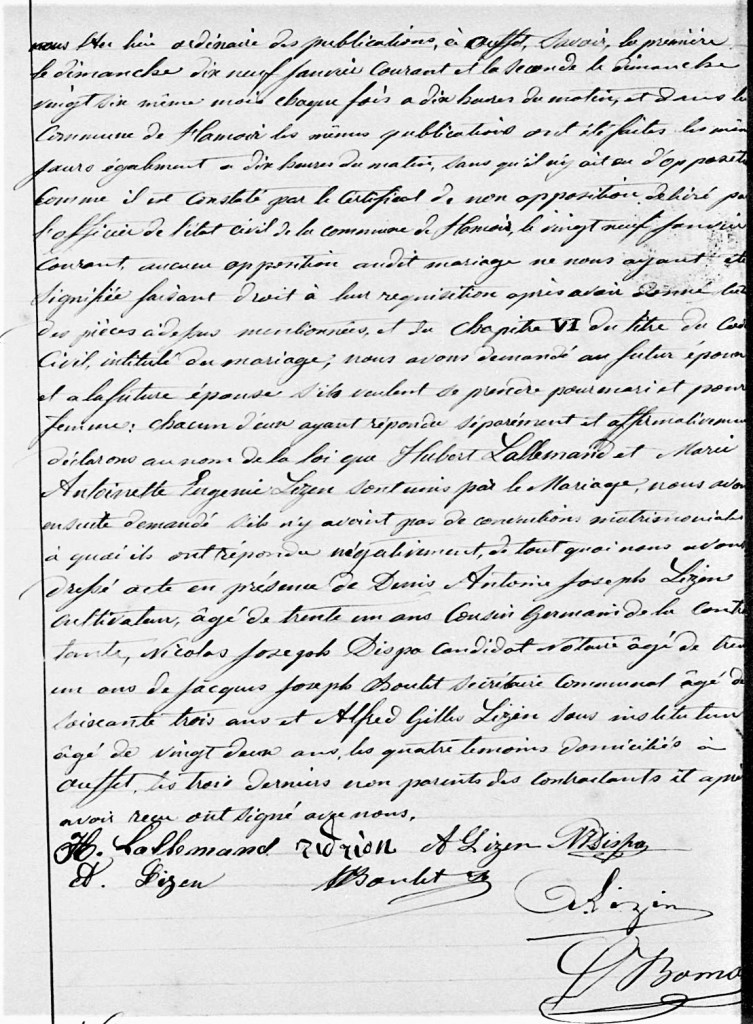 nous et au lieu ordinaire des publications, à ouffet, savoir, la première
le dimanche dix neuf Janvier Courant et la seconde le dimanche
vingt six même mois chaque fois a dix heures du matin, et dans la
Commune de Hamoir les mêmes publications ont été faites les mêm
jours également a dix heures du matin, sans qu'il n'y ait eu d'opposit
Comme il est Constaté par le Certificat de non opposition délivré pa
l'officier de l'état civil de la commune de Hamoir, le vingt neuf Janvier
Courant, aucune opposition audit mariage ne nous ayant été
Signifiée faisant droit à leur requisition après avoir donné lect
des pièces ci dessus mentionnées, et du Chapitre VI du titre du Cod
Civil, intitulé du mariage; nous avons demandé au futur époux
et a la future épouse s'ils veulent se prendre pour mari et pour
femme: chacun d'eux ayant répondu séparément et affirmativemen
déclarons au nom de la loi que Hubert Lallemand et Marie
Antoinette Eugenie Lizen sont unis par le Mariage, nous avon
ensuite demandé s'ils n'y avoient pas de conventions matrimoniales
à quoi ils ont répondu négativement, de tout quoi nous avons
dressé acte en présence de Denis Antoine Joseph Lizen
cultivateur, âgé de trente un ans Cousin Germain de la Cont
tante, Nicolas Joseph Dispa Candidat Notaire âgé de tren
un ans de Jacques Joseph Boulet Secrétaire Communal âgé de
soixante trois ans et Alfred Gilles Lizen sous instituteur
âgé de vingt deux ans, les quatre temoins domiciliés à
ouffet, les trois derniers non parents des contractants et apr
avoir reçu ont signé avec nous.
H. Lallemand A Lizen NDispa
Lizen Boulet
Lizen